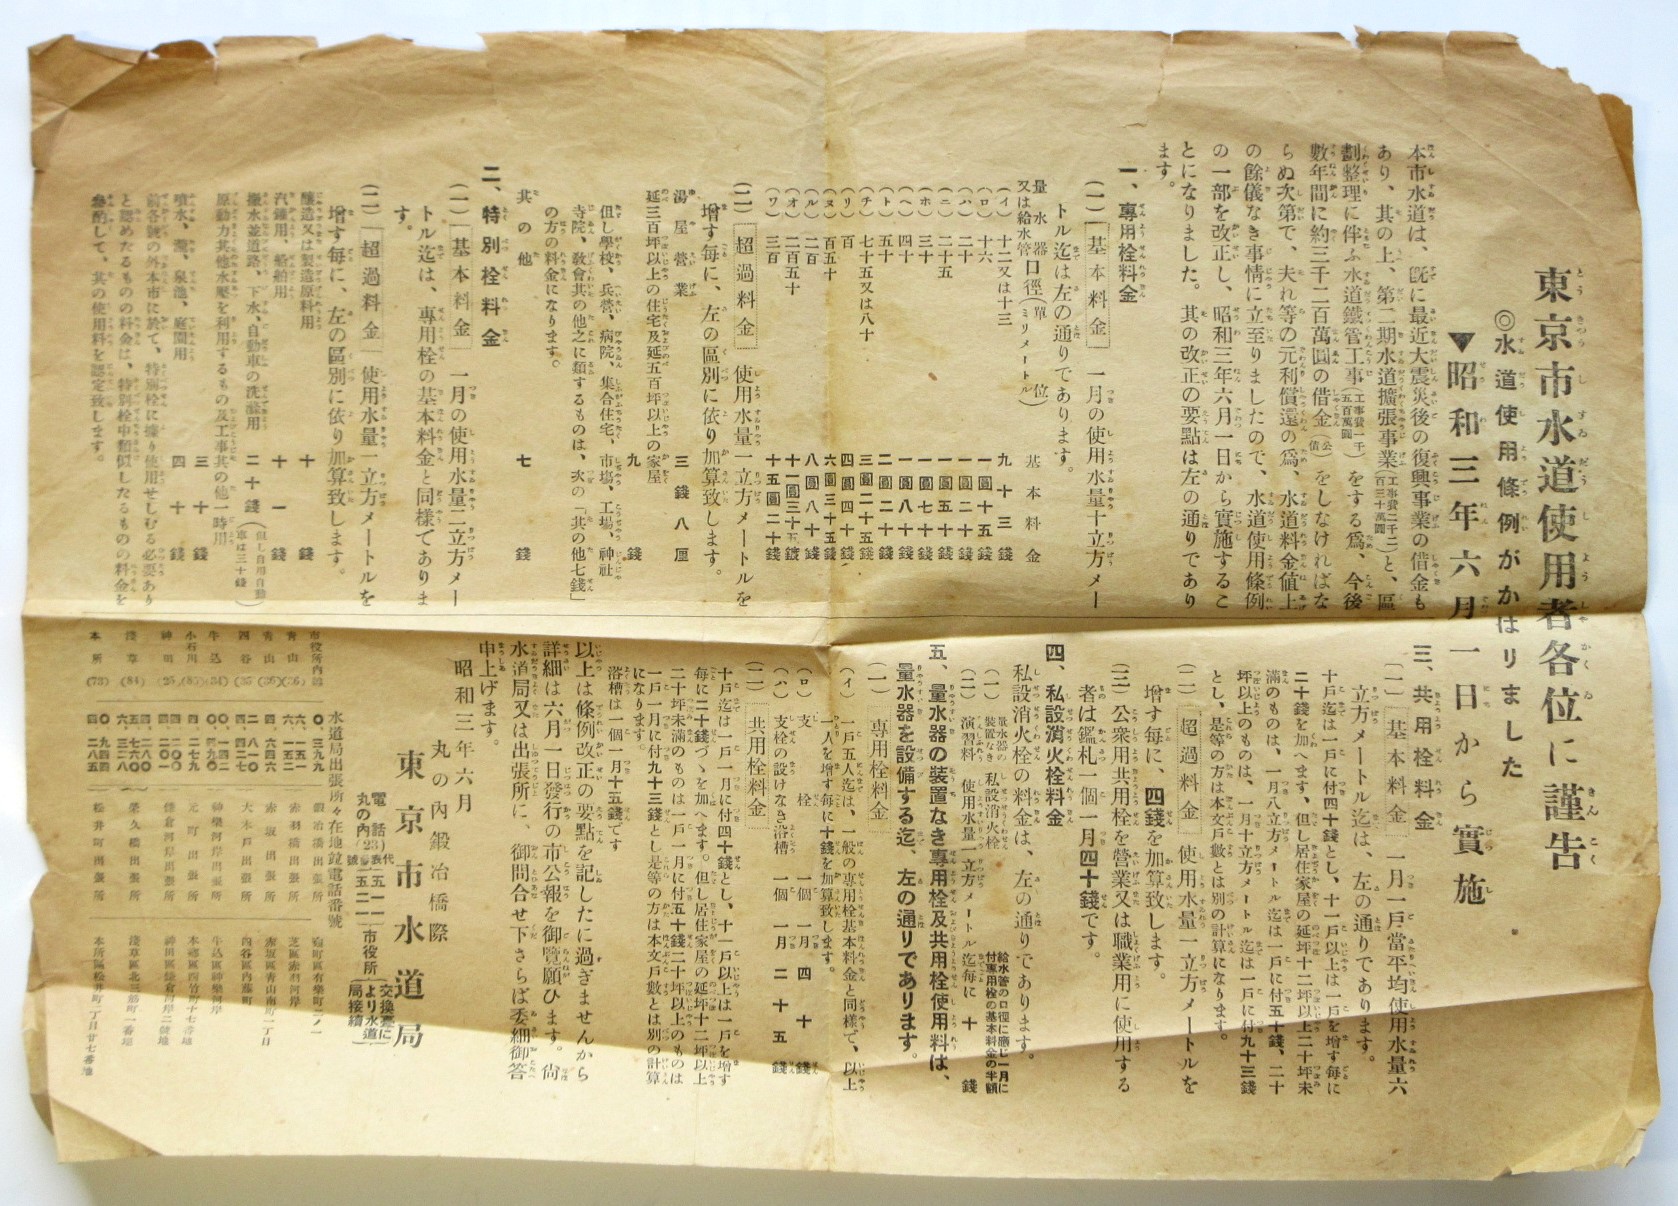 東京市水道使用者各位に謹告
◎水道使用條例がかはりました
▼昭和三年六月一日から實施
本市水道は、既に最近大震災後の復興事業の借金も
あり、其の上、第二期水道擴張事業(工事費二千二百三十萬圓)と、區
劃整理に伴ふ水道鐵管工事(工事費一千五百萬圓)をする爲、今後
數年間に約三千二百萬圓の借金(公債)をしなければな
らぬ次第で、夫れ等の元利償還の爲、水道料金値上
の餘儀なき事情に立至りましたので、水道使用條例
の一部を改正し、昭和三年六月一日から實施するこ
とになりました。其の改正の要點は左の通りであり
ます。
一、專用栓料金
(一) 基本料金 一月の使用水量十立方メー
トル迄は左の通りであります。
量水器又は給水管口徑(單位ミリメートル) 基本料金
(イ) 十二又は十三 九十三錢
(ロ) 十六 一圓十五錢
(ハ) 二十 一圓二十錢
(ニ) 二十五 一圓五十錢
(ホ) 三十 一圓七十錢
(ヘ) 四十 一圓八十錢
(ト) 五十 二圓二十錢
(チ) 七十五又は八十 三圓二十五錢
(リ) 百 四圓四十錢
(ヌ) 百五十 六圓三十五錢
(ル) 二百 八圓八十錢
(オ) 二百五十 十一圓三十五錢
(ワ) 三百 十五圓二十錢
(二) 超過料金 使用水量一立方メートルを
增す每に、左の區別に依り加算致します。
湯屋營業 三錢八厘
延三百坪以上の住宅及延五百坪以上の家屋 九錢
但し學校、兵營、病院、集合住宅、市場、工場、神社
寺院、敎會其の他之に類するものは、次の「其の他七錢」
の方の料金になります。
其の他 七錢
二、特別栓料金
(一) 基本料金 一月の使用水量二立方メー
トル迄は、專用栓の基本料金と同樣でありま
す。
(二) 超過料金 使用水量一立方メートルを
增す每に、左の區別に依り加算致します。
釀造又は製造原料用 十錢
汽鑵用、船舶用 十一錢
撒水並道路、下水、自動車の洗滌用 二十錢(但し自用自動車は三十錢)
原動力其他水壓を利用するもの及工事其の他一時用 三十錢
噴水、瀧、泉池、庭園用 四十錢
前各號の外本市に於て、特別栓に據り使用せしむる必要あり
と認めたるものの料金は、特別栓中類似したるものの料金を
參酌して、其の使用料を認定致します。
三、共用栓料金
(一) 基本料金 一月一戶當平均使用水量六
立方メートル迄は、左の通りであります。
十戶迄は一戶に付四十錢とし、十一戶以上は一戶を增す每に
二十錢を加へます、但し居住家屋の延坪十二坪以上二十坪未
滿のものは、一月八立方メートル迄は一戶に付五十錢、二十
坪以上のものは、一月十立方メートル迄は一戶に付九十三錢
とし、是等の方は本文戶數とは別の計算になります。
(二) 超過料金 使用水量一立方メートルを
增す每に、四錢を加算致します。
(三) 公衆用共用栓を營業又は職業用に使用する
者は鑑札一個一月四十錢です。
四、私設消火栓料金
私設消火栓の料金は、左の通りであります。
(一) 量水器の裝置なき私設消火栓 給水管の口徑に應じ一月に付專用栓の基本料金の半額
(二) 演習料 使用水量一立方メートル迄每に 十錢
五、量水器の裝置なき專用栓及共用栓使用料は、
量水器を設備する迄、左の通りであります。
(一) 專用栓料金
(イ) 一戶五人迄は、一般の專用栓基本料金と同樣で、以上
一人を增す每に十錢を加算致します。
(ロ) 支栓 一個一月 四十錢
(ハ) 支栓の設けなき浴槽 一個一月 二十五錢
(二) 共用栓料金
十戶迄は一戶一月に付四十錢とし、十一戶以上は一戶を增す
每に二十錢づゝを加へます。但し居住家屋の延坪十二坪以上
二十坪未滿のものは一戶一月に付五十錢二十坪以上のものは
一戶一月に付九十三錢とし是等の方は本文戶數とは別の計算
になります。
浴槽は一個一月十五錢です
以上は條例改正の要點を記したに過ぎませんから
詳細は六月一日發行の市公報を御覽願ひます。尙
水道局又は出張所に、御問合せ下さらば委細御答
申上げます。
昭和三年六月
丸の內鍛冶橋際
東京市水道局
電話 丸の內(23)代表番號 五一二一 市役所(交換臺により水道局接續)
水道局出張所々在地並電話番號
市役所內
靑山(36)
靑山(36)
四谷(35)
牛込(34)
小石川(85)
神田(25)
淺草(84)
本所(73)
鍛冶橋出張所 麴町區有樂町二ノ一
赤羽橋出張所 芝區赤羽河岸
赤坂出張所 赤坂區靑山南町一丁目
大木戶出張所 四谷區內藤町
神樂河岸出張所 牛込區神樂河岸
元町出張所
鎌倉河岸出張所
榮久橋出張所 淺草區北三筋町一番地
松井町出張所 本所區松井町一丁目廿七番地